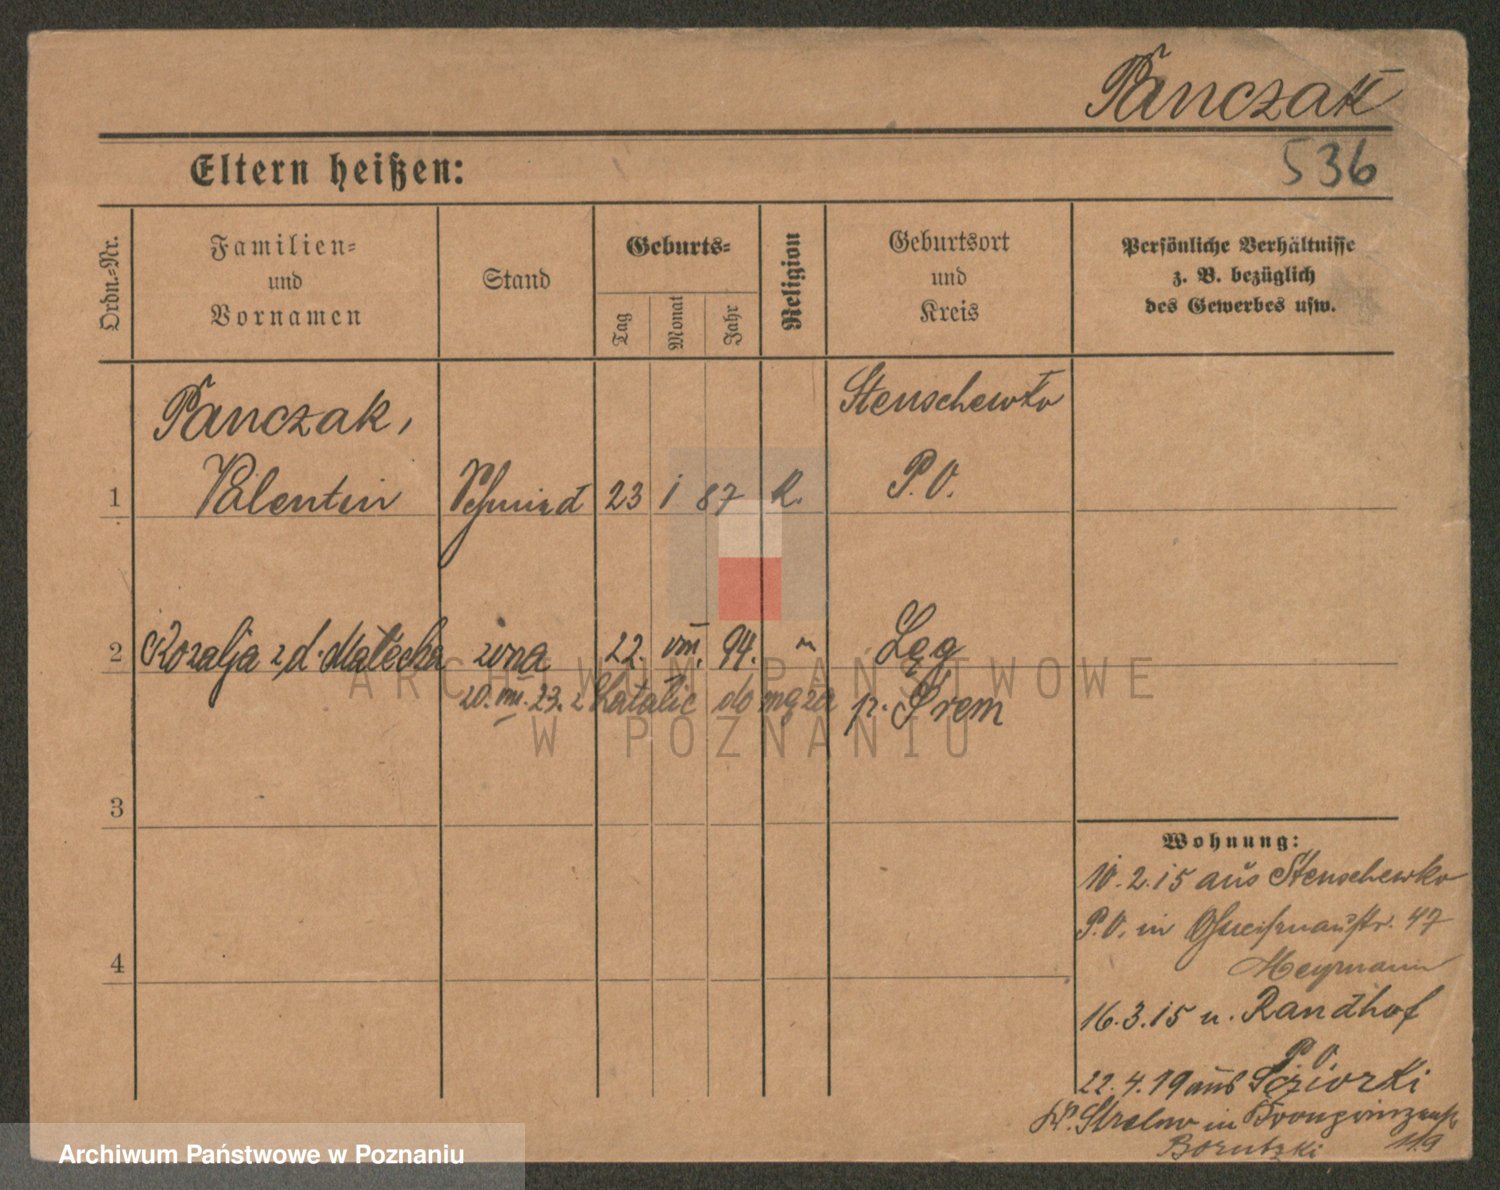 Panczak
Eltern heißen:
536
Ordn.=Nr.
Familien=
und
Vornamen
Stand
Geburts=
Tag
Monat
Jahr
Religion
Geburtsort
und
Kreis
Persönliche Verhältnisse
z. B. bezüglich
des Gewerbes usw.
1
Panczak,
Valentin
Schmied
23
1
87
R.
Stenschewko
P.O.
2
Rozalja z d. Małecka
żona
22.
VIII.
94.
"
Łęg
p. Śrem
20. VIII. 23. z do męża
3
4
Wohnung:
10.2.15 aus Stenschewko
P.O. in Gneisenaustr. 47
Heymann
16.3.15 n. Randhof
P.O.
22.4.19 aus
Kr. Strelno in Kronprinzenstr.
119
ARCHIWUM PAŃSTWOWE
W POZNANIU
Archiwum Państwowe w Poznaniu